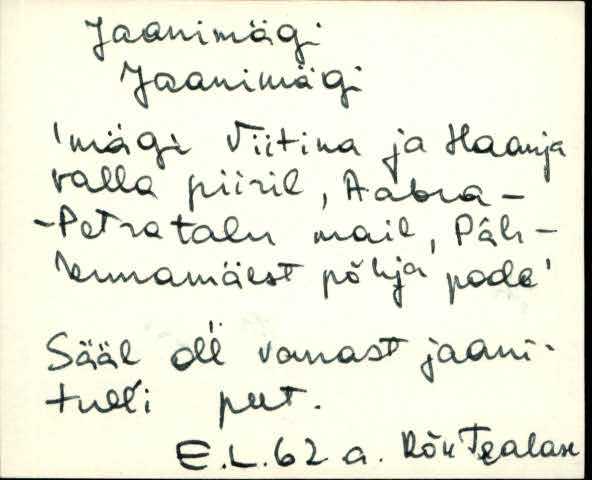 Jaanimägi
Jaanimägi
'mägi Viitina ja Haanja
valla piiril, Aabra-
-Petra talu mail, Päh-
kunamäest põhja pool'
Sääl oll vanast jaani-
tulli peet.
E.L. 62 a. Rõu